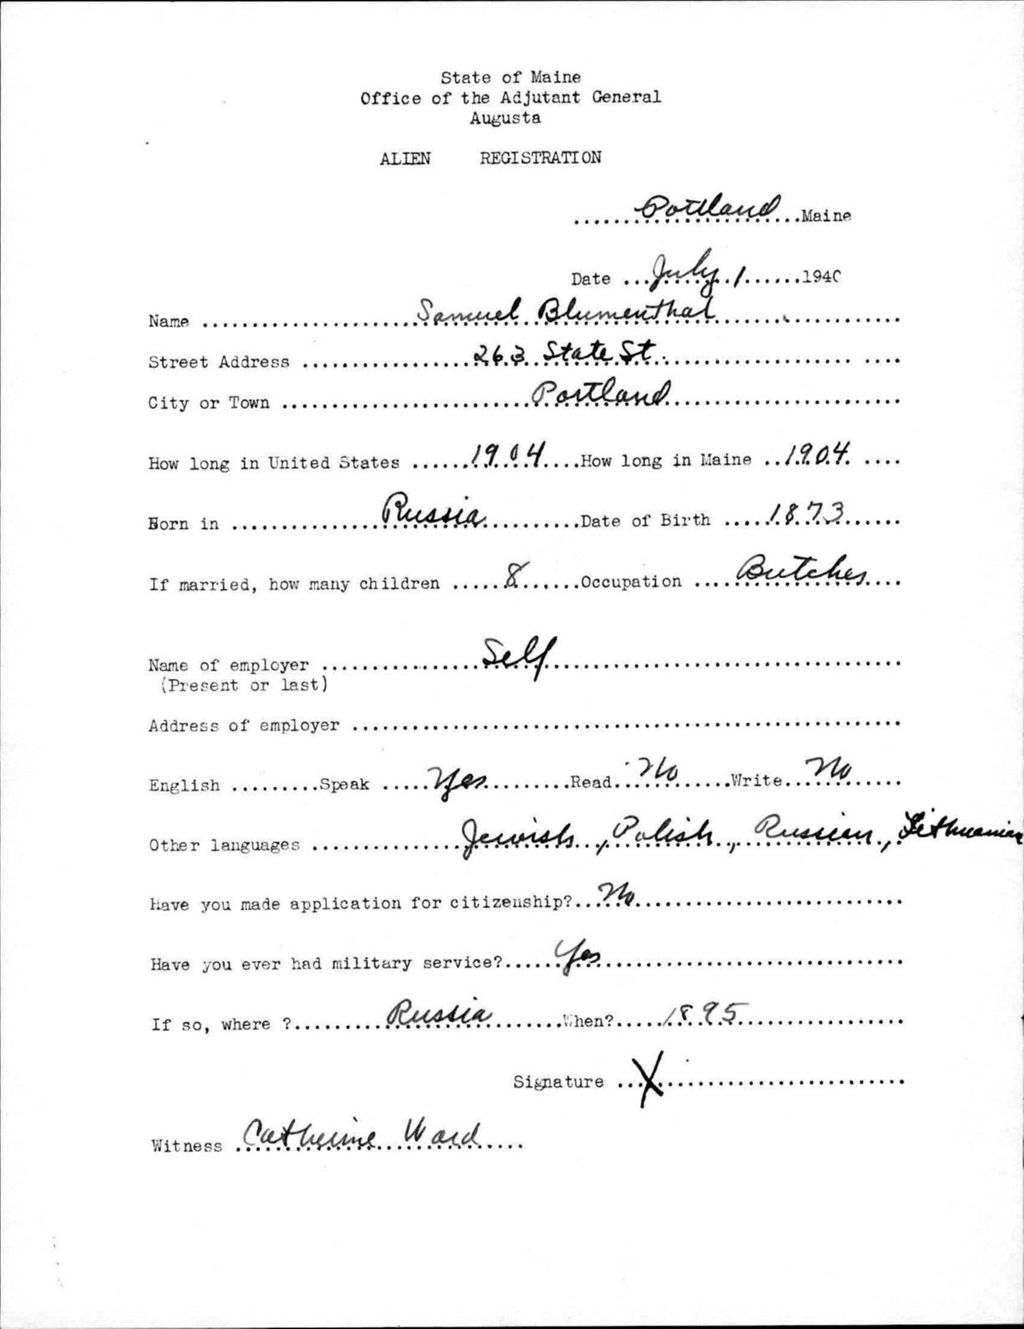 State of Maine
Office of the Adjutant General
Augusta
ALIEN REGISTRATION
.......Portland...Maine
Date ...July 1......1940
Name ......................Samuel Blumenthal....................
Street Address .................263 State St........................
City or Town .........................Portland........................
How long in United States ......1904....How long in Maine ..1904. ....
Born in ...............Russia..........Date of Birth .....1873......
If married, how many children .....8......Occupation ....Butcher....
Name of employer ................Self....................................
(Present or last)
Address of employer .......................................................
English .........Speak .....Yes.........Read...No......Write...No.....
Other languages ...............Jewish, Polish, Russian, Lithuanian
Have you made application for citizenship?...No...........................
Have you ever had military service?......Yes..............................
If so, where ?.........Russia.......When?.....1895................
Signature ...X.........................
Witness .Catherine Ward....